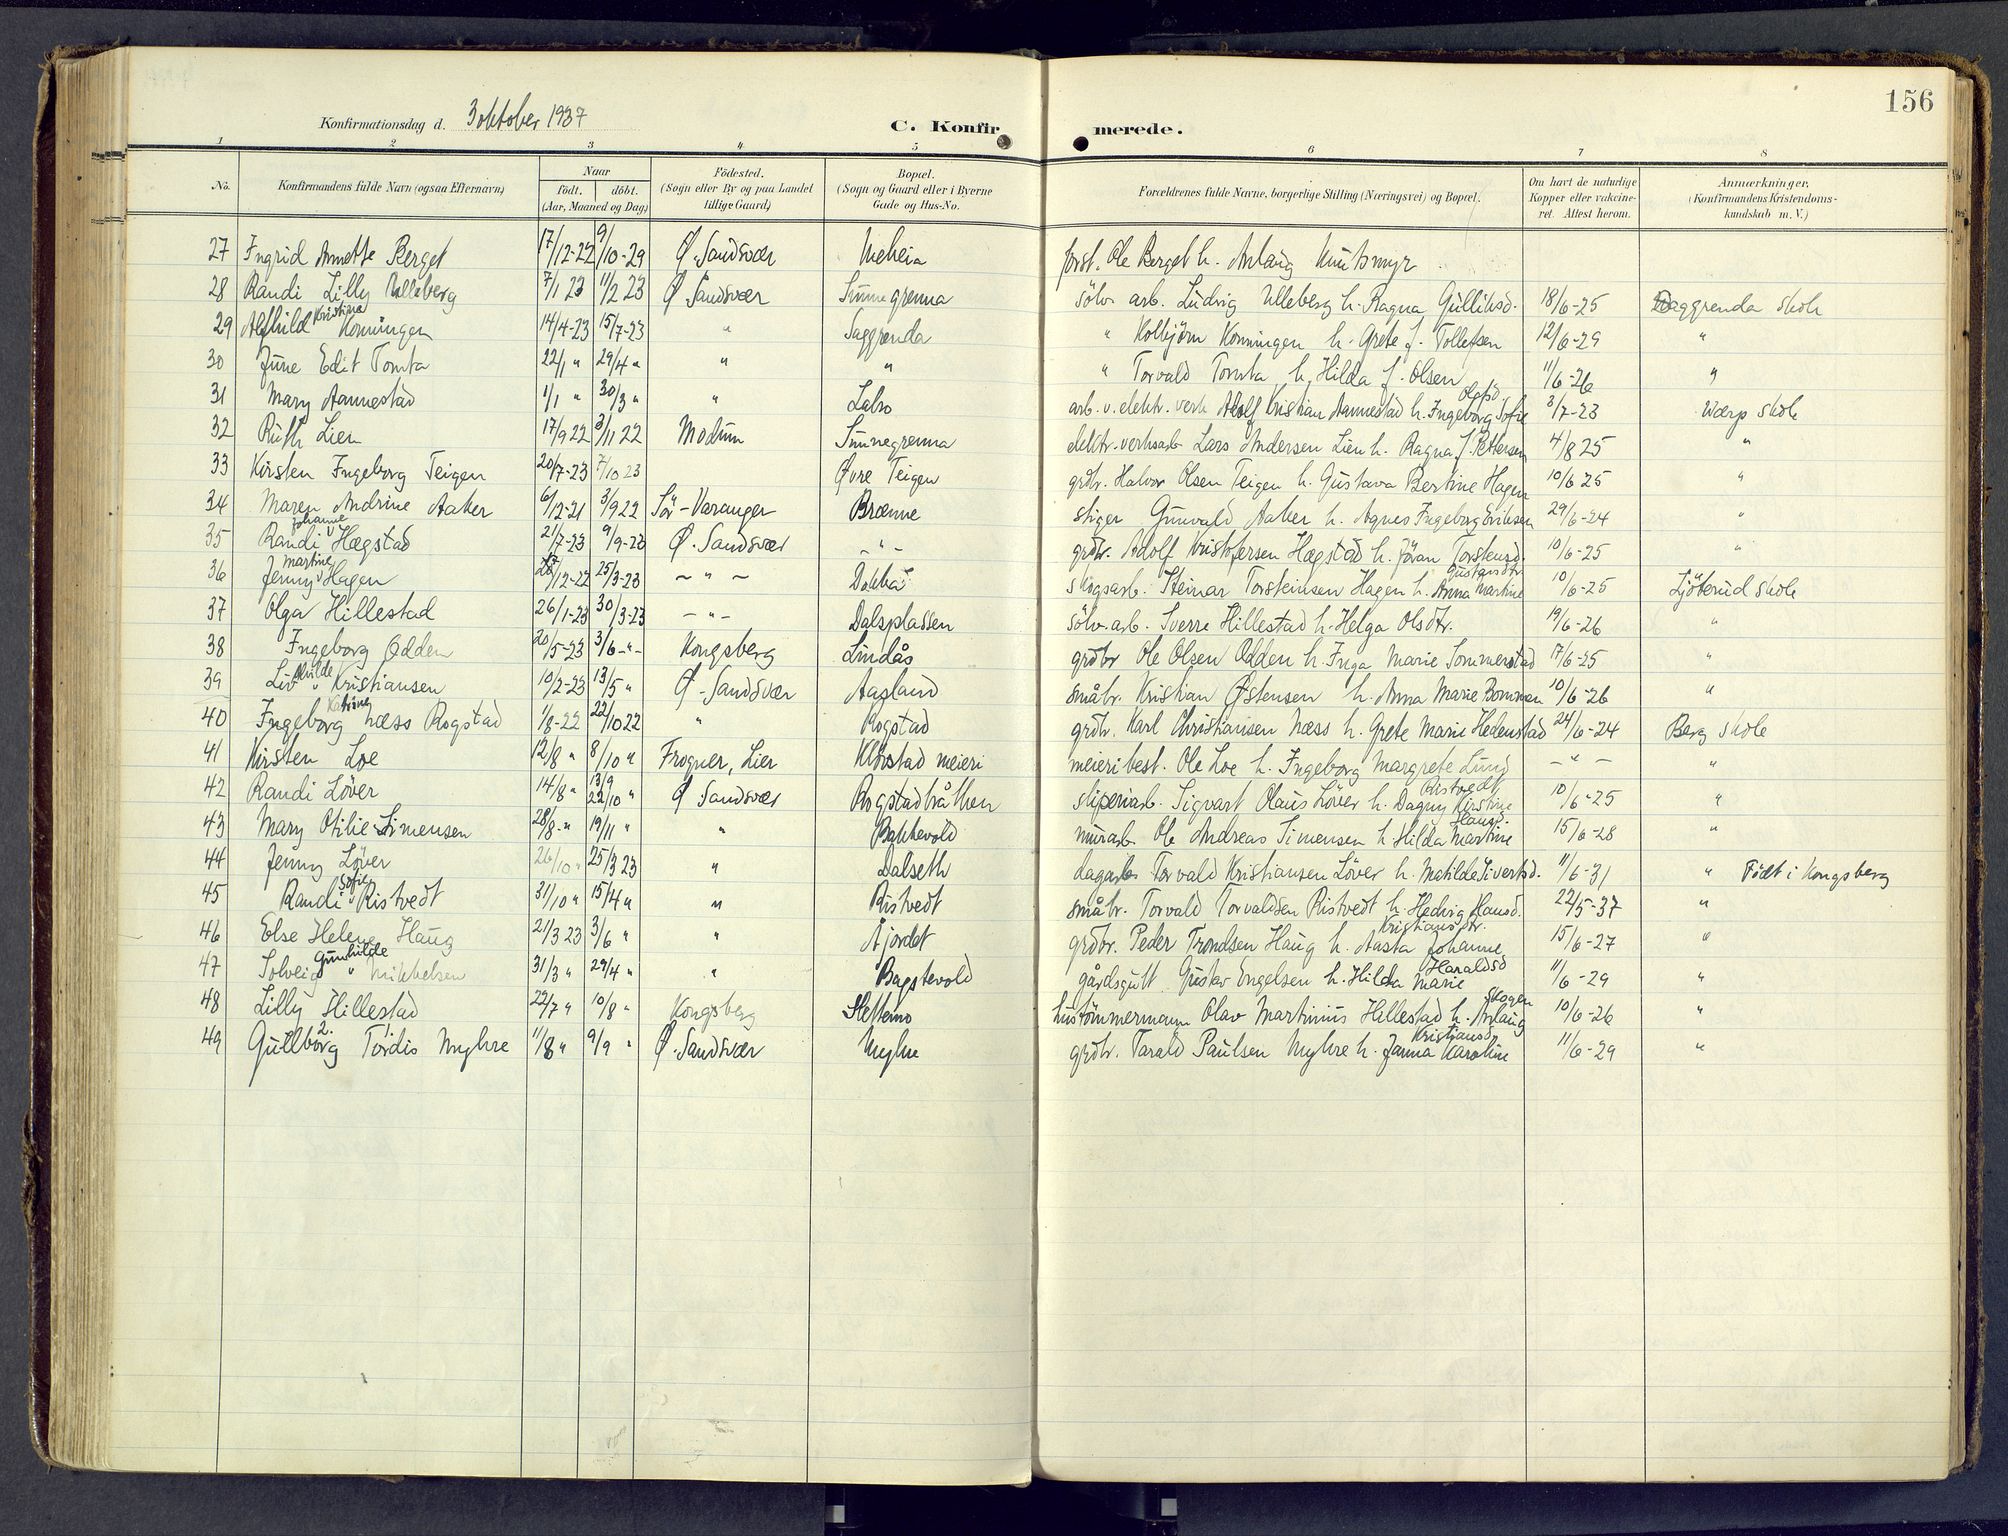 156
Konfirmationsdag d. 3 oktober 1937
C. Konfirmerede.
1 2 3 4 5 6 7 8
No. Konfirmandens fulde Navn (ogsaa Efternavn) Naar født. døbt. (Aar, Maaned og Dag) Fødested. (Sogn eller By og paa Landet tillige Gaard) Bopæl. (Sogn og Gaard eller i Byerne Gade og Hus-No. Forældrenes fulde Navne, borgerlige Stilling (Næringsvei) og Bopæl. Om havt de naturlige Kopper eller vakcineret. Attest herom. Anmærkninger. (Konfirmandens Kristendomskundskab m. V.)
27 Ingrid Annette Berget 17/12-22 9/10-29 Ø. Sandsvær Meheia forst. Ole Berget h. Anlaug Knutsmyr
28 Randi Lilly Ulleberg 7/1 23 11/2 23 Ø Sandsvær Sunnegrenna sölv. arb. Ludvig Ulleberg h. Ragna Gulliksd. 18/6-25 Saggrenda skole
29 Alfhild Kristine Konningen 14/4-23 15/7-23 " Saggrenda " Kolbjörn Konningen h. Grete f. Tollefsen 12/6-29 "
30 June Edit Tomta 22/1 " 29/4 " " " " Torvald Tomta h. Hilda f. Olsen 11/6-26 "
31 Mary Aannestad 1/1 " 30/3 " " Labro arb. v. elektr. verk Adolf Kristian Aannestad h. Ingeborg Sofie Olafsd 3/7-23 Wærp skole
32 Ruth Lien 17/9 22 3/11 22 Modum Sunnegrenna elektr. verksarb Lars Andersen Lien h. Ragna f. Pettersen 4/8 25 "
33 Kirsten Ingeborg Teigen 20/7-23 7/10 23 Øvre Teigen grdbr. Halvor Olsen Teigen h. Gustava Bertine Hagen 10/6 25 "
34 Maren Andrine Aaker 6/12-21 3/9 22 Sör-Varanger Brænne stiger Gunvald Aaker h. Agnes Ingeborg Eriksen 29/6-24 "
35 Randi Johanne Hægstad 21/7-23 9/9-23 Ø. Sandsvær - " - grdbr. Adolf Kristofersen Hægstad h. Jöran Torstensd. 10/6-25 "
36 Jenny Martine Hagen /12-22 25/3-23 - " - Dokka skogsarb. Steinar Torsteinsen Hagen h. Anna Martine Gustavsdtr. 10/6-25 Ljöterud skole
37 Olga Hillestad 26/1-23 30/3-23 - " - Dalsplassen sölv. arb. Sverre Hillestad h. Helga Olsdtr. 19/6-26 "
38 Ingeborg Odden 20/5-23 3/6 - " - Kongsberg Lindås grdbr Ole Olsen Odden h. Inga Marie Sommerstad 17/6-25 "
39 Liv Alvilde Kristiansen 10/2-23 13/5 " Ø. Sandsvær Aasland småbr. Kristian Østensen h. Anna Marie Bommen 10/6-26 "
40 Ingeborg Katrine Næss Rogstad 1/8-22 22/10 22 " Rogstad grdbr. Karl Christiansen Næss h. Grete Marie Hedenstad 24/6-24 Berg skole
41 Kirsten Loe 12/8 " 8/10 " Frogner, Lier Klörstad meieri meieribest. Ole Loe h. Ingeborg Margrete Lund - " - "
42 Randi Löver 14/8 " 13/9 22/10 " Ø Sandsvær Rogstadbråthen sliperiarb. Sigvart Olaus Löver h. Dagny Kirstine Ristvedt 10/6-25 "
43 Mary Otilie Simensen 28/8-" 19/11 " " Bakkevold murarb. Ole Andreas Simensen h Hilda Martine Hansd. 15/6-28 "
44 Jenny Löver 26/10 " 25/3 23 " Dalseth dagarb. Torvald Kristiansen Löver h. Matilde Sivertsd. 11/6-31 " Födt i Kongsberg
45 Randi Sofie Ristvedt 31/10 " 15/4 " " Ristvedt småbr. Torvald Torvaldsen Ristvedt h. Hedvig Hansd. 22/5-37 "
46 Else Helene Haug 21/3 23 3/6 " " Åjordet grdbr. Peder Trondsen Haug h. Aasta Johanne Kristiansdtr. 15/6-27 "
47 Solveig Gunhilde Mikkelsen 31/3 " 29/4 " " Bagstevold gårdsgutt Gustav Engelsen h. Hilda Marie Haraldsd 11/6-29 "
48 Lilly Hillestad 22/7 " 10/8 " Kongsberg Slettemo hustömmermann Olav Martinius Hillestad h. Aslaug Skogen 10/6-26 "
49 Gullborg 2. Tordis 1. Myhre 11/8 " 9/9 " Ø. Sandsvær Myhre grdbr. Tarald Paulsen Myhre h. Janna Karoline Kristiansd. 11/6-29 "